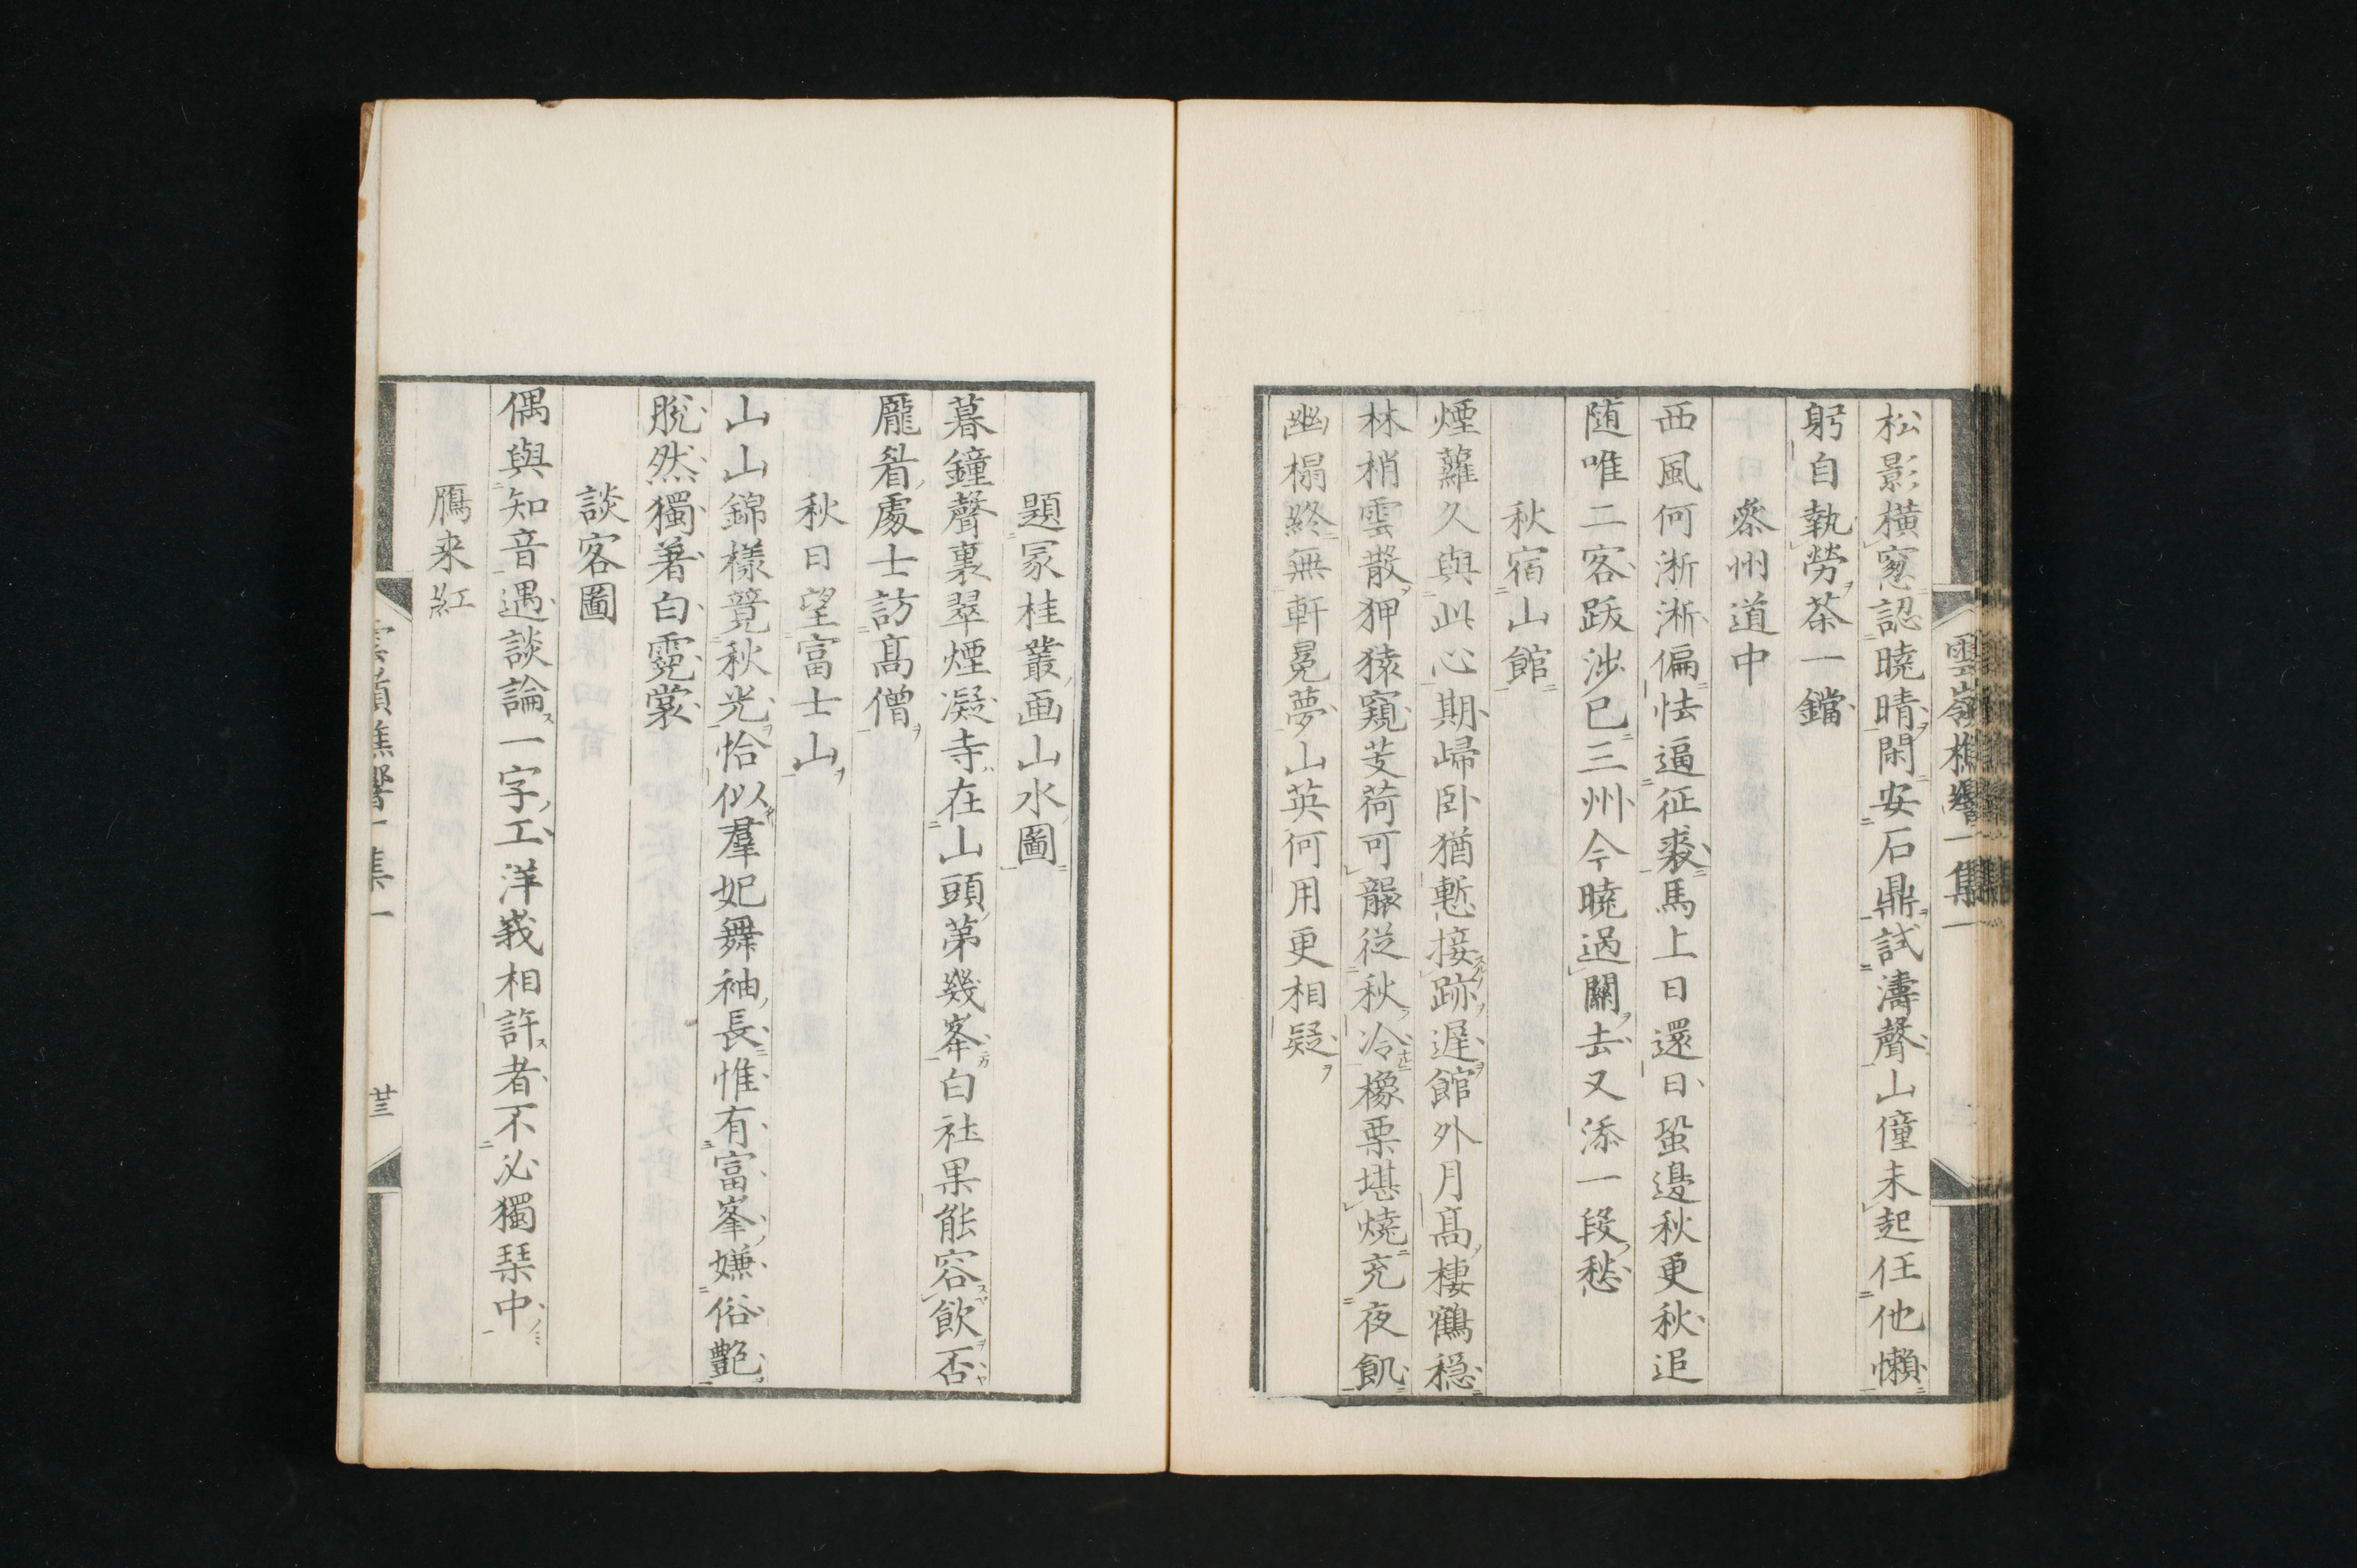 雲嶺樵響一集一
松影横窓認曉晴閑安石鼎試濤聲山僮未起任他懶
躬自執勞茶一鐺
叅州道中
西風何淅淅偏怯逼征裘馬上日還日蛩邊秋更秋追
随唯二客跋渉已三州今曉過關去又添一段愁
秋宿山館
煙蘿久與此心期歸卧猶慙接跡遅館外月髙棲鶴穏
林梢雲散狎猿窺芰荷可襲從秋冷橡栗堪燒充夜飢
幽榻終無軒冕夢山英何用更相疑
題冢桂叢画山水圖
暮鐘聲裏翠煙凝寺在山頭第幾峯白社果能容飲否
龎眉處士訪髙僧
秋日望富士山
山山錦樣競秋光恰似羣妃舞袖長惟有富峯嫌俗艶
脱然獨著白霓裳
談客圖
偶與知音遇談論一字工洋峩相許者不必獨琴中
鴈来紅
雲嶺樵響一集一
廿三